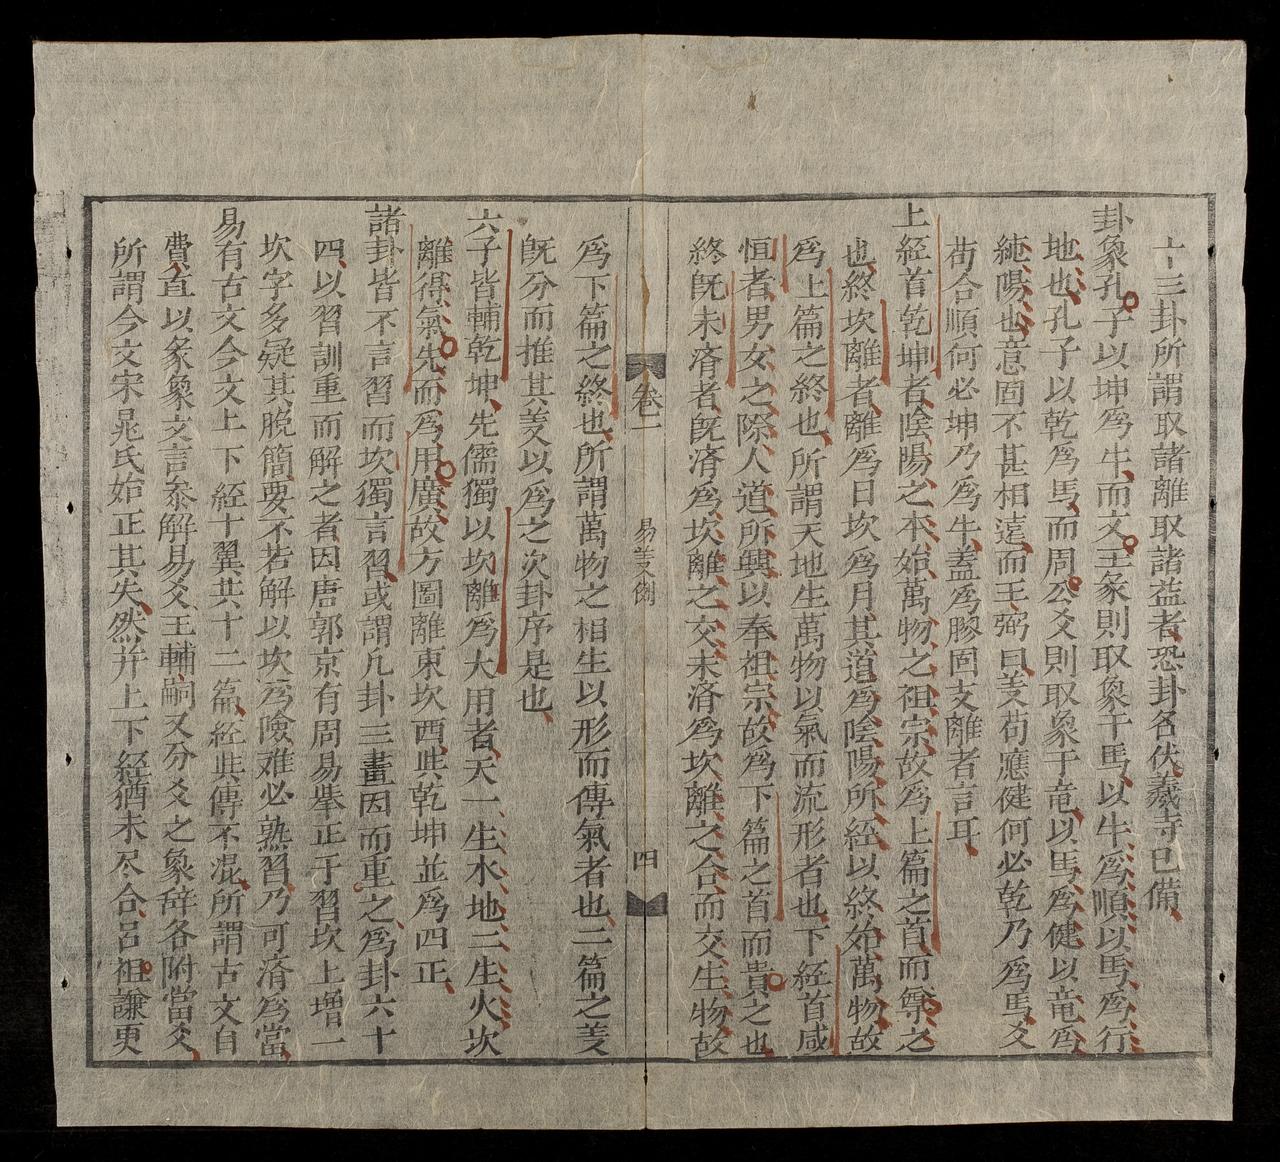 十三卦所謂取諸離取諸益者恐卦名伏羲時已備
卦象孔子以坤爲牛而文王彖則取象于馬以牛爲順以馬爲行
地也孔子以乾爲馬而周公爻則取象于竜以馬爲健以竜爲
純陽也意固不甚相遠而王弼曰義苟應健何必乾乃爲馬爻
苟合順何必坤乃爲牛蓋爲膠固支離者言耳
上經首乾坤者陰陽之本始萬物之祖宗故爲上篇之首而尊之
也終坎離者離爲日坎爲月其道爲陰陽所經以終始萬物故
爲上篇之終也所謂天地生萬物以氣而流形者也下經首咸
恒者男女之際人道所興以奉祖宗故爲下篇之首而貴之也
終既未濟者既濟爲坎離之交未濟爲坎離之合而交生物故
卷一
易義例
四
爲下篇之終也所謂萬物之相生以形而傳氣者也二篇之義
既分而推其義以爲之次卦序是也
六子皆輔乾坤先儒獨以坎離爲大用者天一生水地二生火坎
離得氣先而爲用廣故方圖離東坎西與乾坤並爲四正
諸卦皆不言習而坎獨言習或謂凡卦三畫因而重之爲卦六十
四以習訓重而解之者因唐郭京有周易舉正于習坎上增一
坎字多疑其脫簡要不若解以坎爲險难必熟習乃可濟爲當
易有古文今文上下經十翼共十二篇經與傳不混所謂古文自
費直以彖象文言叅解易爻王輔嗣又分爻之象辞各附當爻
所謂今文宋晁氏始正其失然并上下經猶未尽合吕祖謙更